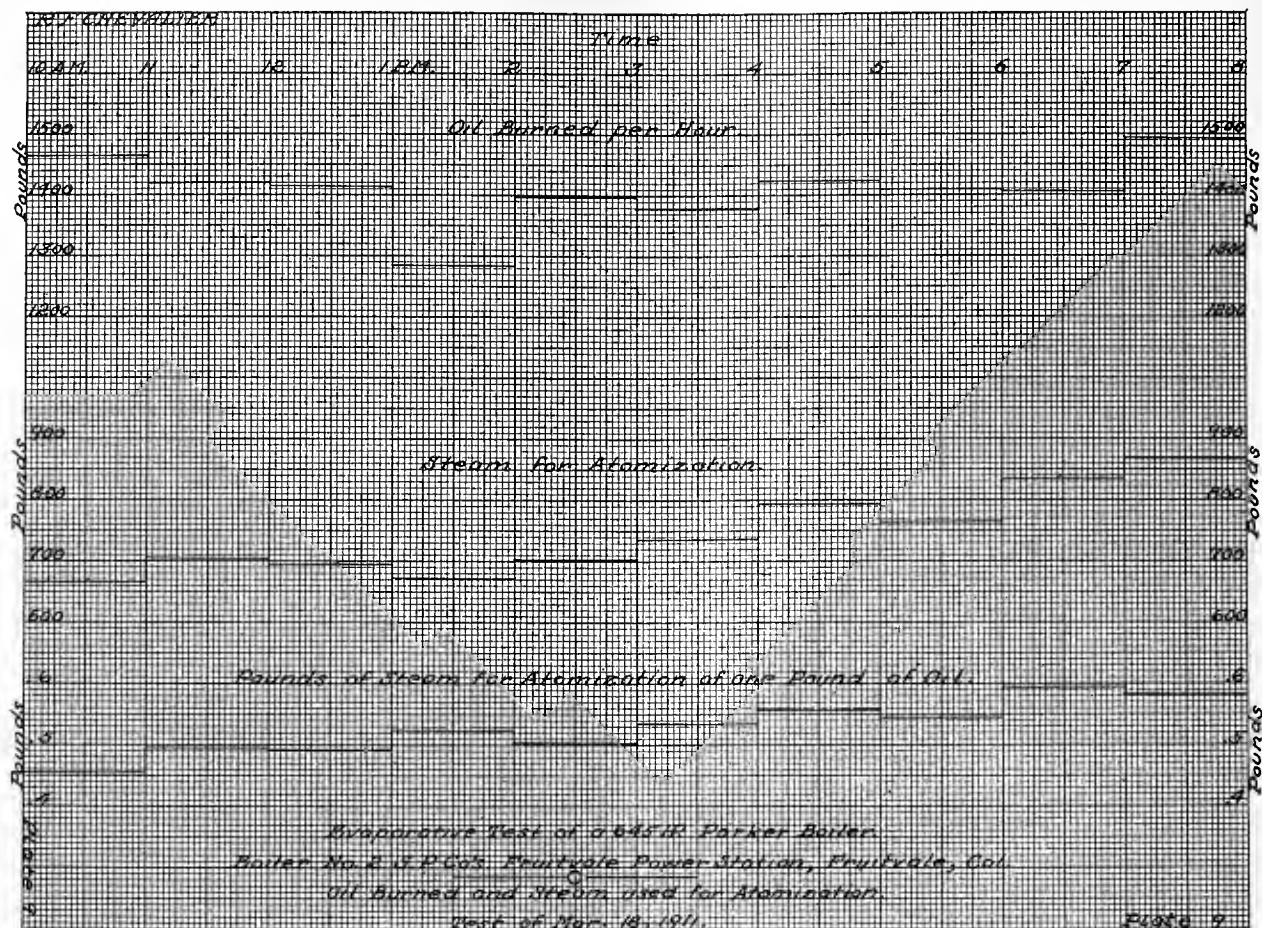 R F CHEVALIER
Time
10 A.M. 11 12 1 P.M. 2 3 4 5 6 7 8
Oil Burned per Hour.
1500 1500
Pounds Pounds
1400 1400
1300 1300
1200 1200
900 900
Steam for Atomization.
Pounds Pounds
800 800
700 700
600 600
Pounds of Steam for Atomization of one Pound of Oil.
.6 .6
Pounds Pounds
.5 .5
.4 .4
Evaporative Test of a 645 HP Parker Boiler
Boiler No. 2 S.P.Co's Fruitvale Power Station, Fruitvale, Cal.
Oil Burned and Steam used for Atomization.
Test of Mar. 18, 1911.
Plate 9
Plate 9